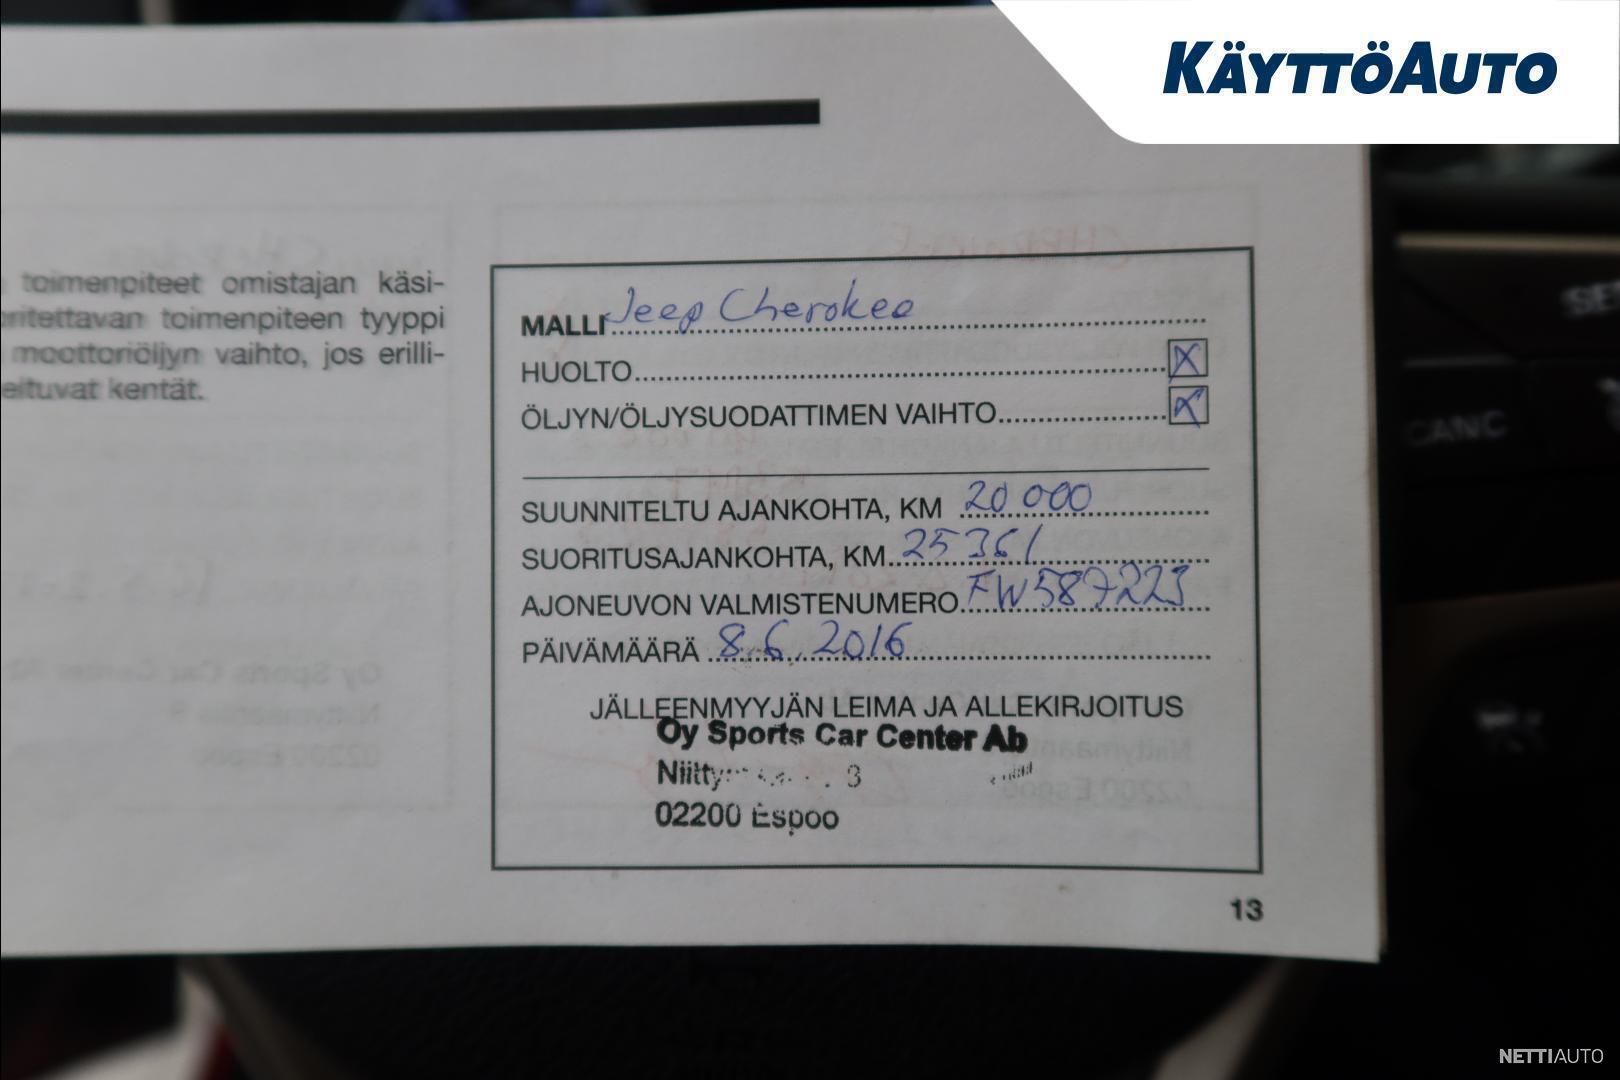 KÄYTTÖAUTO
toimenpiteet omistajan käsi-
toimenpiteen tyyppi
moottoriöljyn vaihto, jos erilli-
kentät.
MALLI Jeep Cherokee
HUOLTO X
ÖLJYN/ÖLJYSUODATTIMEN VAIHTO X
SUUNNITELTU AJANKOHTA, KM 20 000
SUORITUSAJANKOHTA, KM 25 361
AJONEUVON VALMISTENUMERO FW587223
PÄIVÄMÄÄRÄ 8.6.2016
JÄLLEENMYYJÄN LEIMA JA ALLEKIRJOITUS
Oy Sports Car Center Ab
3
02200 Espoo
13
CANC
NETTIAUTO